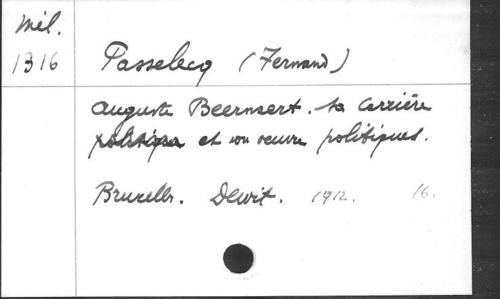 Mél.
1316
Passelecq (Fernand)
Auguste Beernaert. Sa carrière
politique et son oeuvre politiques.
Bruxelles. Dewit. 1912. 16.